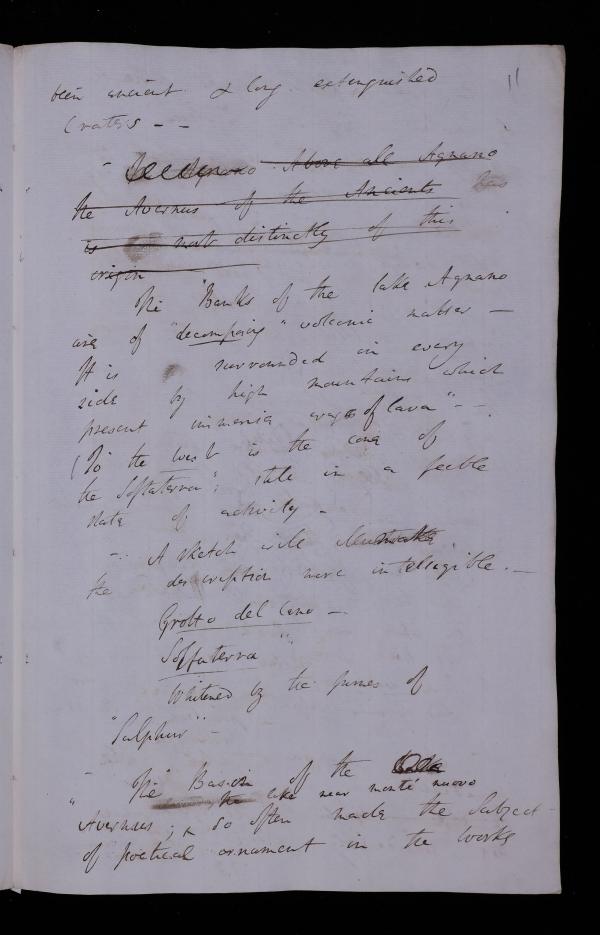 11
been ancient & long extinguished
Craters - -
- Agnano Above all Agnano
the Avernus of the Ancients has
is most distinctly of this
origin
The "Banks of the lake Agnano
are of "decomposing" volcanic matter —
It is surrounded on every
side by high mountains which
present immense of lava" - -
(To the West is the cone of
the Solfaterra": still in a feeble
state of activity -
-. A sketch will
the description more intelligible. -
Grotto del Cane -
Solfaterra "
Whitened by the fumes of
"Sulphur" -
- The Basin of the
the lake near monte nuovo
"Avernus; & so often made the Subject
of poetical ornament in the works